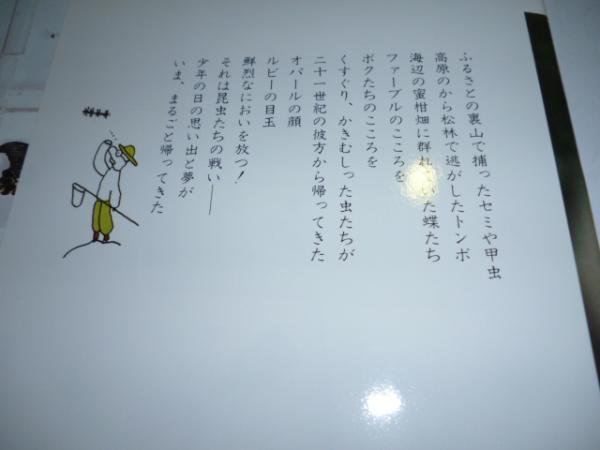 ふるさとの裏山で捕ったセミや甲虫
高原のから松林で逃がしたトンボ
海辺の蜜柑畑に群れ いた蝶たち
ファーブルのこころを
ボクたちのこころを
くすぐり、かきむしった虫たちが
二十一世紀の彼方から帰ってきた
オパールの顔
ルビーの目玉
鮮烈なにおいを放つ!
それは昆虫たちの戦い——
少年の日の思い出と夢が
いま、まるごと帰ってきた